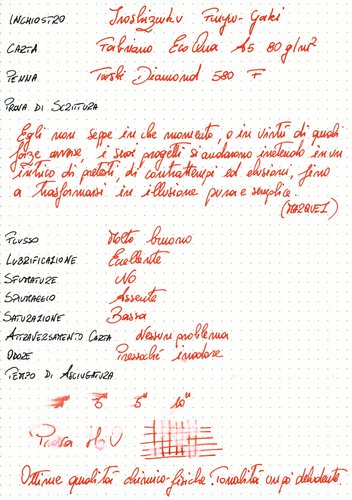 INCHIOSTRO Iroshizuku Fuyu-Gaki
CARTA Fabriano EcoQua A5 80 g/m²
PENNA Twsbi Diamond 580 F
PROVA DI SCRITTURA
Egli non seppe in che momento, o in virtù di quali
forze avverse, i suoi progetti si andarono inetendo in un
intrico di pretesti, di contrattempi ed elusioni, fino
a trasformarsi in illusione pura e semplice.
(MARQUEZ)
FLUSSO Molto buono
LUBRIFICAZIONE Eccellente
SFUMATURE No
SPIUMAGGIO Assente
SATURAZIONE Bassa
ATTRAVERSAMENTO CARTA Nessun problema
ODORE Pressoché inodore
TEMPO DI ASCIUGATURA
5" 10"
Prova H2O
Ottime qualità chimico-fisiche. Tonalità un po' deludente.